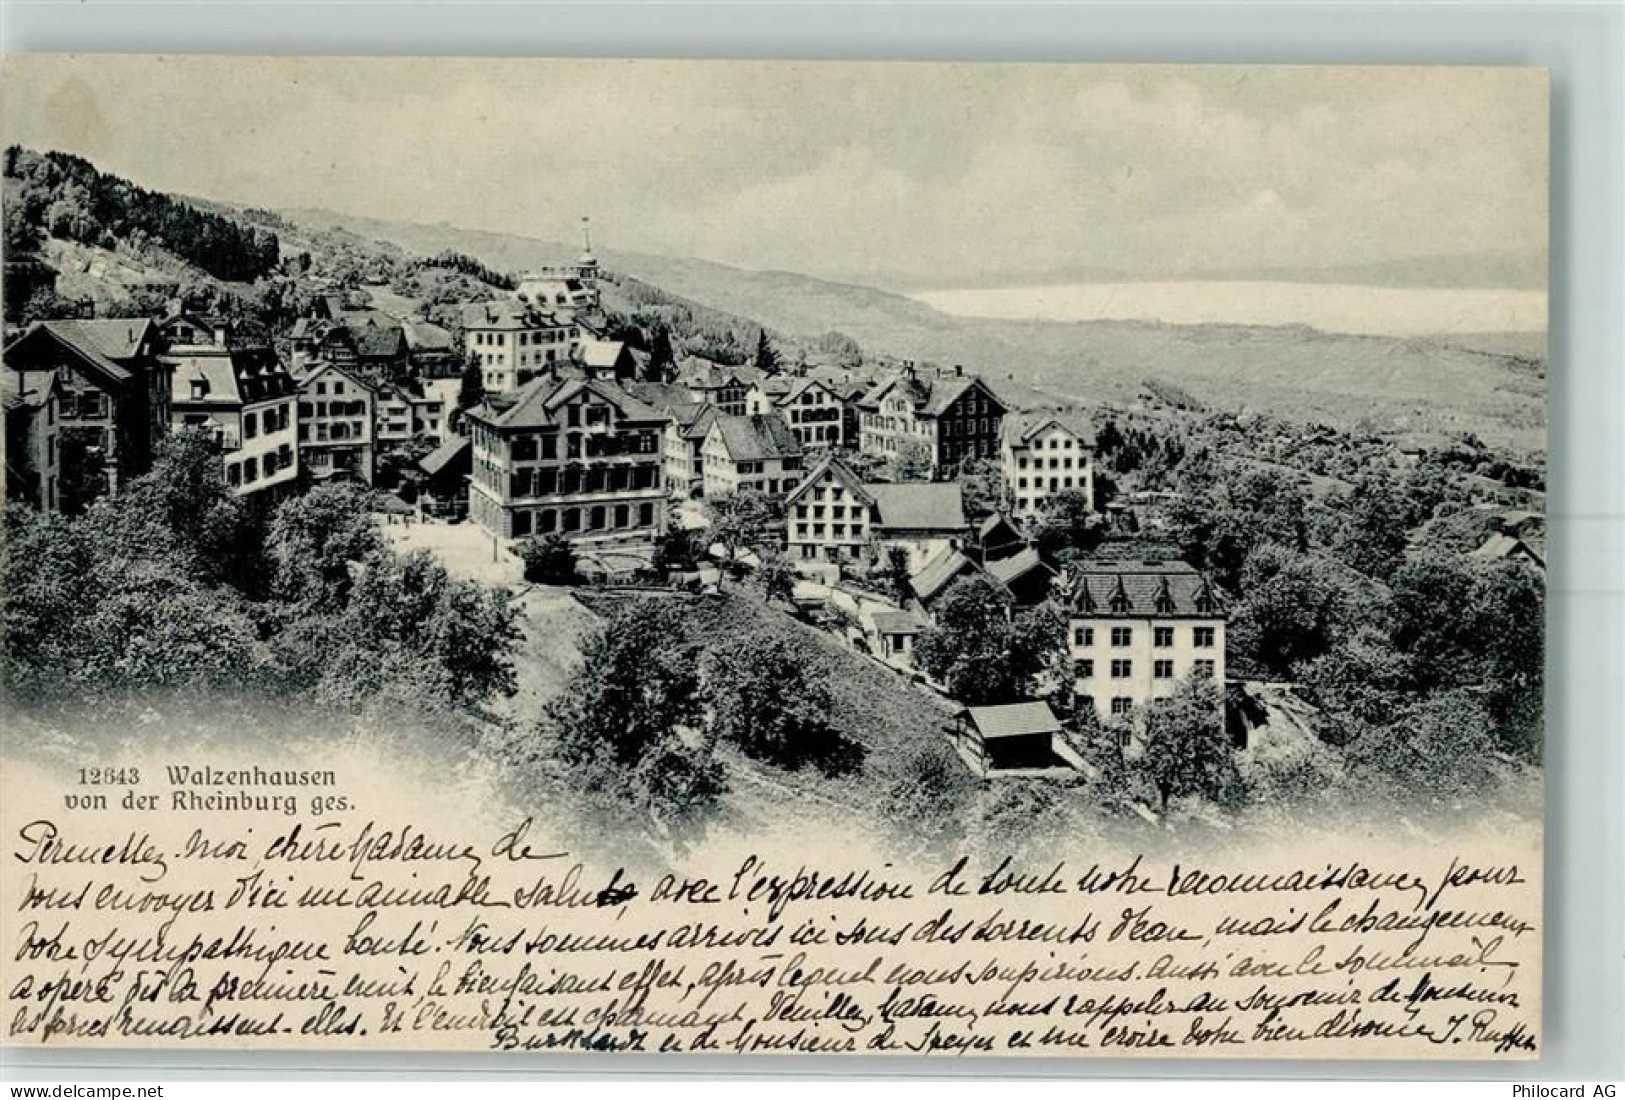 12643 Walzenhausen
von der Rheinburg ges.
Permettez-moi, chère Madame, de
vous envoyer d'ici un aimable salut, avec l'expression de toute notre reconnaissance, pour
votre sympathique bonté. Nous sommes arrivés ici sous des torrents d'eau, mais le changement
a opéré dès la première nuit, le bienfaisant effet, après lequel nous soupirions. Aussi avec le sommeil,
les forces renaissent-elles. Et l'endroit est charmant. Veuillez, Madame, nous rappeler au souvenir de Monsieur
Burkhardt et de Monsieur de Speyer et me croire votre bien dévouée J.
Philocard AG